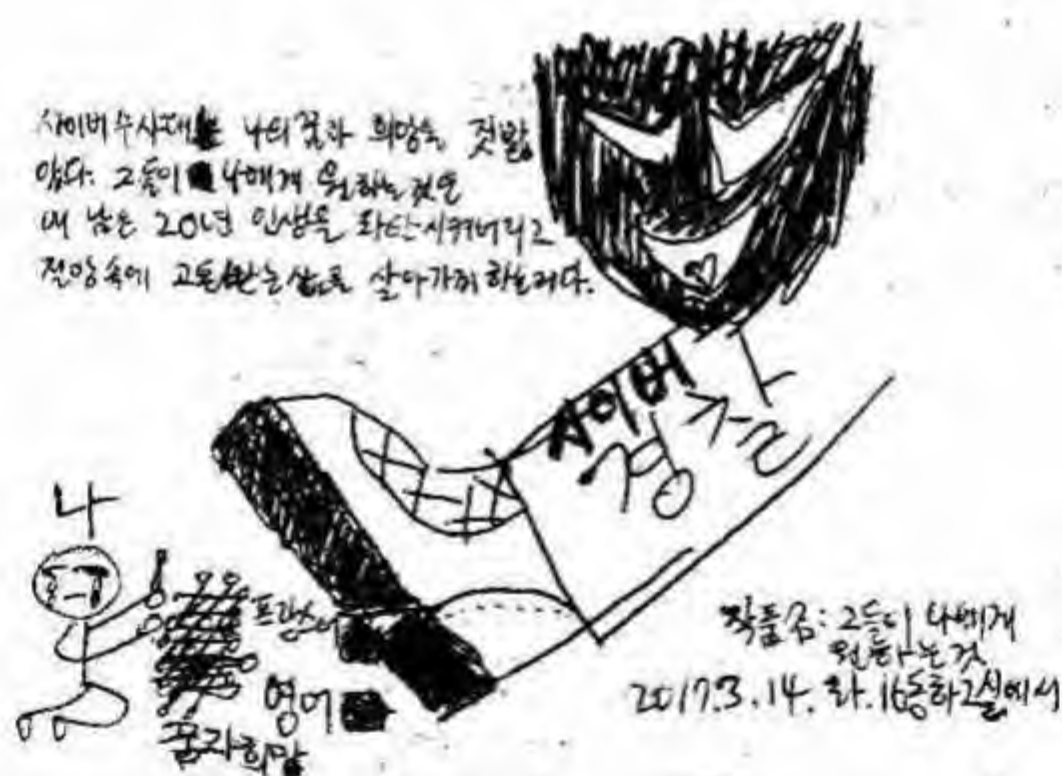 사이버수사대는 나의 꿈과 희망을 짓밟
았다. 그들이 나에게 원하는것은
내 남은 20년 인생을 파탄시켜버리고
절망속에 고통받는삶으로 살아가게 하는거다.
사이버
경찰
나
프랑스어
영어
꿈과희망
작품금: 그들이 나에게
원하는것
2017.3.14. 화.